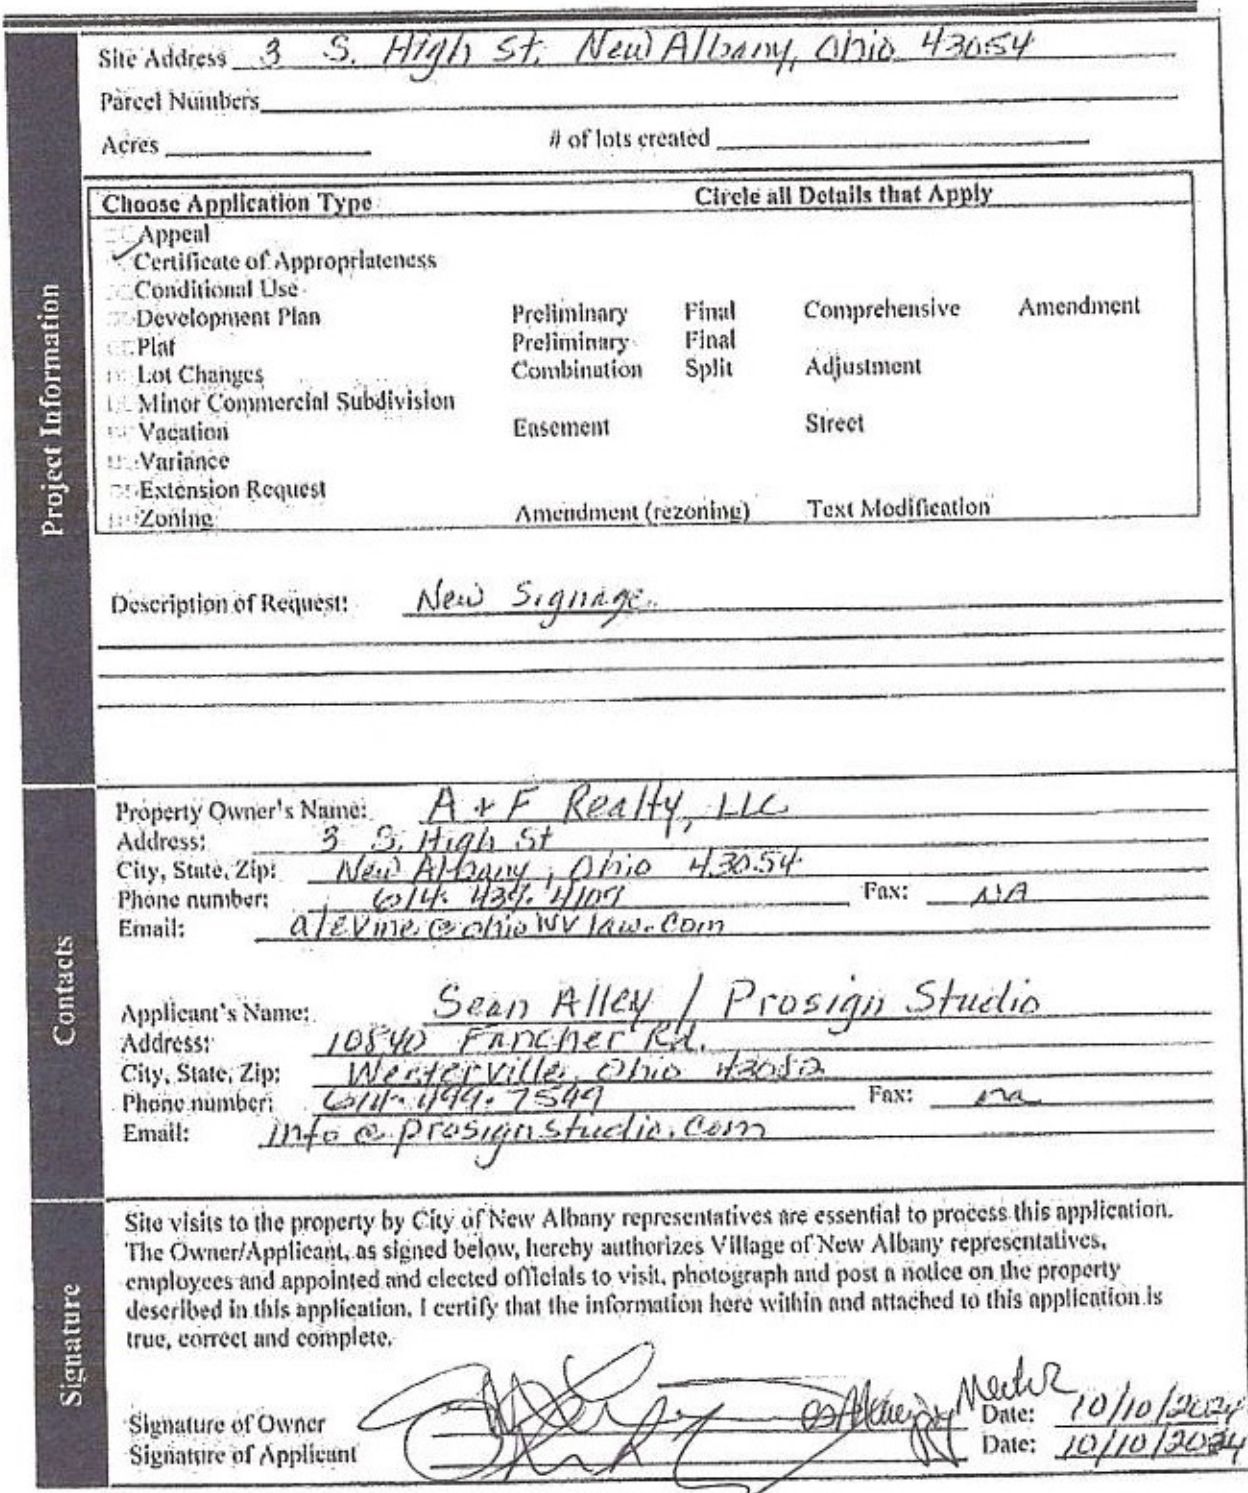 Site Address 3 S. High St. New Albany, Ohio 43054
Parcel Numbers
Acres # of lots created
Project Information
Choose Application Type Circle all Details that Apply
Appeal
Certificate of Appropriateness
Conditional Use
Development Plan Preliminary Final Comprehensive Amendment
Plat Preliminary Final
Lot Changes Combination Split Adjustment
Minor Commercial Subdivision
Vacation Easement Street
Variance
Extension Request
Zoning Amendment (rezoning) Text Modification
Description of Request: New Signage
Contacts
Property Owner's Name: A + F Realty, LLC
Address: 3 S. High St
City, State, Zip: New Albany, Ohio 43054
Phone number: Fax: NA
Email:
Applicant's Name: Sean Alley / Prosign Studio
Address: 10840 Fancher Rd.
City, State, Zip: Westerville, Ohio 43082
Phone number: 614-499-7549 Fax: na
Email: info@prosignstudio.com
Signature
Site visits to the property by City of New Albany representatives are essential to process this application.
The Owner/Applicant, as signed below, hereby authorizes Village of New Albany representatives,
employees and appointed and elected officials to visit, photograph and post a notice on the property
described in this application. I certify that the information here within and attached to this application is
true, correct and complete.
Signature of Owner Date: 10/10/2024
Signature of Applicant Date: 10/10/2024